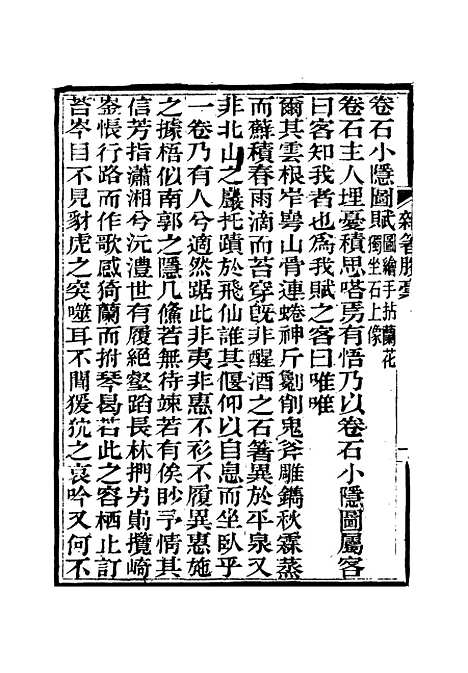 卷石小隱圖賦 圖繪手拈蘭花獨坐石上像
卷石主人埋憂積思嗒焉有悟乃以卷石小隱圖屬客
曰客知我者也爲我賦之客曰唯唯
爾其雲根岝崿山骨連蜷神斤劖削鬼斧雕鐫秋霖蒸
而蘚積春雨滴而苔穿旣非醒酒之石箸異於平泉又
非北山之巖托蹟於飛仙誰其偃仰以自息而坐臥乎
一卷乃有人兮適然踞此非夷非惠不衫不履異惠施
之據梧似南郭之隱几翛若無待竦若有俟眇予情其
信芳指瀟湘兮沅澧世有履絕壑蹈長林捫屴崱攬崎
崟悵行路而作歌感猗蘭而拊琴曷若此之容栖止訂
苔岑目不見豺虎之突噬耳不聞猨狖之哀吟又何不